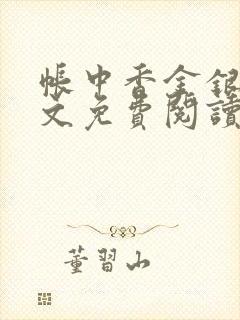 帳中香金銀
文免費閱讀
董習山